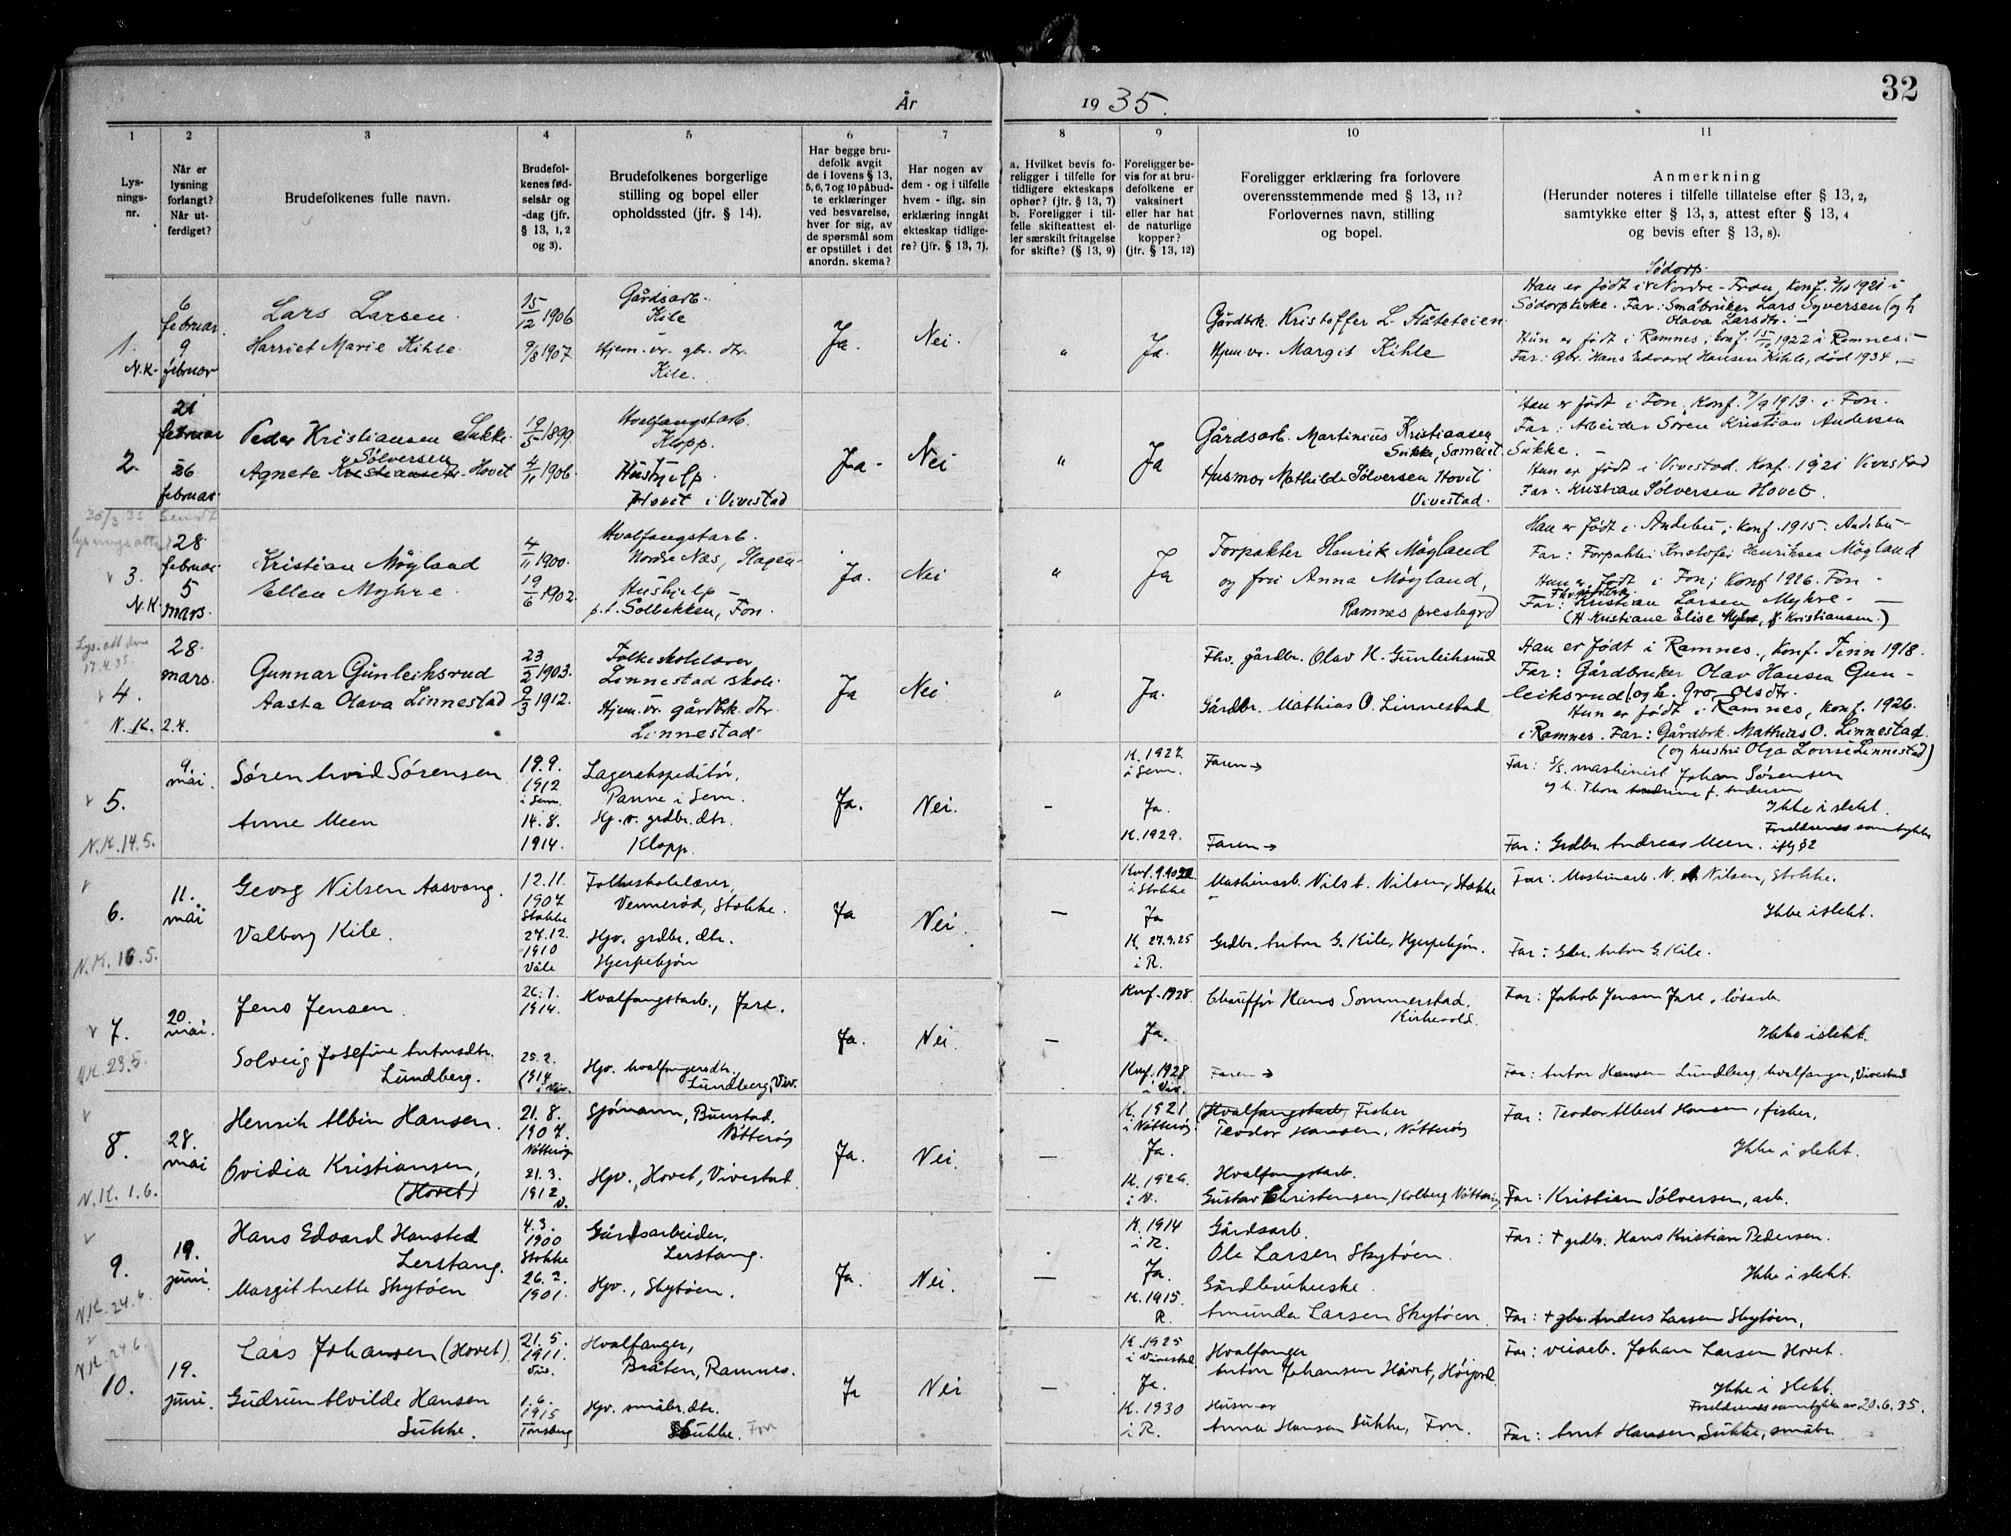 32
År 1935.
1 2 3 4 5 6 7 8 9 10 11
Lys-
nings-
nr.
Når er
lysning
forlangt?
Når ut-
ferdiget?
Brudefolkenes fulle navn.
Brudefol-
kenes fød-
selsår og
-dag (jfr.
§ 13, 1, 2
og 3).
Brudefolkenes borgerlige
stilling og bopel eller
opholdssted (jfr. § 14).
Har begge bru-
defolk avgit
de i lovens § 13,
5, 6, 7 og 10 påbud-
te erklæringer
ved besvarelse,
hver for sig, av
de spørsmål som
er opstillet i det
anordn. skema?
Har nogen av
dem - og i tilfelle
hvem - iflg. sin
erklæring inngått
ekteskap tidlige-
re? (jfr. § 13, 7).
a. Hvilket bevis fo-
religger i tilfelle for
tidligere ekteskaps
ophør? (jfr. § 13, 7)
b. Foreligger i til-
felle skifteattest el-
ler særskilt fritagelse
for skifte? (§ 13, 9)
Foreligger be-
vis for at bru-
defolkene er
vaksinert
eller har hat
de naturlige
kopper?
(jfr. § 13, 12)
Foreligger erklæring fra forlovere
overensstemmende med § 13, 11?
Forlovernes navn, stilling
og bopel.
Anmerkning
(Herunder noteres i tilfelle tillatelse efter § 13, 2,
samtykke efter § 13, 3, attest efter § 13, 4
og bevis efter § 13, 8).
1.
N.K.
6
februar
9
februar
Lars Larsen.
Harriet Marie Kihle.
15/12 1906
9/8 1907.
Gårdsarb.
Kile
Hjem.vr. gbr. dtr.
Kile.
Ja.
Nei.
"
Ja.
Gårdbrk. Kristoffer L. Flåteteien
Hjem.vr. Margit Kihle
Sødorp
Han er født i Nordre-Fron, Konf. 2/10 1921 i
Sødorp kirke. Far: Småbruker Lars Syversen (og h
Olava Larsdtr. -
Hun er født i Ramnes, konf. 15/10 1922 i Ramnes. -
Far: Gbr. Hans Edvard Hansen Kihle, død 1934. -
2.
21
februar
26
februar
Peder Kristiansen Sukke.
Sølversen
Agnete Kristiansen Hovet
19/5 1899.
4/11 1906.
Hvalfangstarb.
Klopp.
Hushjelp
Hovet i Vivestad
Ja.
Nei
"
Ja
Gårdsarb. Martinius Kristiansen
Sukke, Someiet.
Husmor Mathilde Sølversen Hovet
Vivestad.
Han er født i Fon, Konf. 7/9 1913. i Fon.
Far: Arbeider Søren Kristian Andersen
Sukke. -
Hun er født i Vivestad. Konf. 1921 Vivestad
Far: Kristian Sølversen Hovet.
30/3.35 sendt
lysningsattest
3.
N.K.
28
februar
5
mars.
Kristian Møyland
Ellen Myhre.
4/11 1900.
19/6 1902.
Hvalfangstarb.
Nordre Næs, Slagen
Hushjelp -
p.t. Solbakken, Fon.
Ja.
Nei
"
Ja
Forpakter Henrik Møyland
og frú Anna Møyland,
Ramnes prestegrd
Han er født i Andebu, konf. 1915. Andebu -
Far: Forpakter Kristofer Henriksen Møyland
Hun er født i Fon; Konf 1926. Fon -
Far: Kristian Larsen Myhre. -
(H. Kristiane Elise Myhre, f. Kristiansen.)
Lys.att den
17.4.35.
4.
N.K. 2.4.
28.
mars.
Gunnar Gunleiksrud
Aasta Olava Linnestad
23/2 1903.
9/3 1912.
Folkeskolelærer
Linnestad skole
Hjem.vr. gårdbrk. dtr.
Linnestad.
Ja
Nei
"
Ja.
Fhv. gårdbr. Olav H. Gunleiksrud
Gårdbr. Mathias O. Linnestad
Han er født i Ramnes., Konf. Tinn 1918.
Far: Gårdbruker Olav Hansen Gun-
leiksrud (og h. Gro Olsdtr.
Hun er født i Ramnes, konf. 1926
i Ramnes. Far: Gårdbrk. Mathias O. Linnestad.
(og hustri Olga Lovise Linnestad)
5.
N.K. 14.5.
9.
mai.
Søren Arvid Sørensen
Anne Meen
19.9.
1912
i Sem.
14.8.
1914.
Lagerekspeditør,
Panne i Sem.
Hj. v. grdbr. dtr.
Klopp.
Ja.
Nei.
-
K. 1927.
i Sem.
Ja.
K. 1929.
Faren →
Faren →
Far: S/S. maskinist Johan Sørensen
og h. Thora Andrine f. Andersen
Ikke i slekt.
Foreldrenes samtykke
Far: Grdbr. Andreas Meen. iflg § 2
6.
N.K. 16.5.
11.
mai
Georg Nilsen Aasvang.
Valborg Kile.
12.11.
1907
Stokke
27.12.
1910
Våle
Folkeskolelærer,
Vennerød, Stokke.
Hjv. grdbr. dtr.
Hjerpekjøn
Ja
Nei.
-
i Stokke
Ja
K. 27.9.25
i R.
Maskinarb. Nils A. Nilsen, Stokke
Grdbr. Anton G. Kile, Hjerpekjøn.
Far: Maskinarb. N. A. Nilsen, Stokke.
Ikke i slekt.
Far: Gbr. Anton G. Kile.
7.
N.K. 23.5.
20
mai.
Jens Jensen
Solveig Josefine Antonsdtr.
Lundberg.
26.1.
1914.
25.2.
1914
i Viv.
Hvalfangstarb., Jare.
Hjv. hvalfangersdtr.
Lundberg, Viv.
Ja.
Nei.
-
Konf. 1928.
Ja.
Konf. 1928
i Viv.
Chauffør Hans Sommerstad,
Kirkevold.
Faren →
Far: Jakob Jensen Jare, løsarb.
Ikke i slekt.
Far: Anton Hansen Lundberg, hvalfanger, Vivestad
8.
N.K. 1.6.
28.
mai
Henrik Albin Hansen.
Ovidia Kristiansen,
(Hovet)
21.8.
1907.
Nøtterøy
21.3.
1912
V.
Sjømann, Bunstad,
Nøtterøy
Hjv., Hovet, Vivestad
Ja.
Nei.
-
K. 1921
i Nøtterøy
Ja.
K. 1926.
i V.
Hvalfangstarb. Fisker
Teodor Hansen, Nøtterøy
Hvalfangstarb.
Gustav Christensen, Kolberg Nøtterøy
Far: Teodor Albert Hansen, fisker,
Ikke i slekt.
Far: Kristian Sølversen, arb.
9.
N.K. 24.6.
19.
juni
Hans Edvard Hansted
Lerstang.
Margit Anette Skytøen
4.3.
1900
Stokke
26.2.
1901.
Gårdsarbeider,
Lerstang.
Hjv., Skytøen.
Ja.
Nei.
-
K. 1914
i R.
Ja.
K. 1915.
R.
Gårdsarb.
Ole Larsen Skytøen.
Gårdbruherske
Amunda Larsen Skytøen
Far: + grdbr. Hans Kristian Pedersen.
Ikke i slekt.
Far: + gbr. Anders Larsen Skytøen,
N.K. 24.6.
10.
19.
juni.
Lars Johansen (Hovet)
Gudrun Alvilde Hansen
Sukke.
21.5.
1911.
Viv.
1.6.
1915
Tønsberg
Hvalfanger,
Bråten, Ramnes.
Hjv. småbr. dtr.
Sukke. Fon
Ja
Nei
-
K. 1925
i Vivestad.
Ja.
K. 1930
i R.
Hvalfanger
Anton Johansen Håvet, Høijord.
Husmor
Anna Hansen Sukke, Fon.
Far: veiarb. Johan Larsen Hovet.
Ikke i slekt.
Foreldrenes samtykke av 20.6.35.
Far: Arnt Hansen Sukke, småbr.